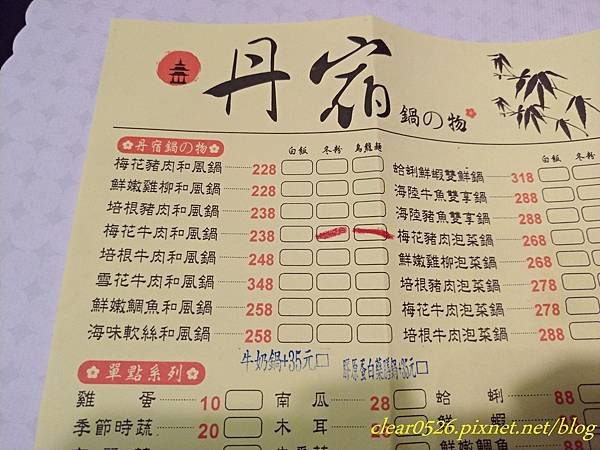 丹宿
鍋の物
丹宿鍋の物
白飯 冬粉 烏龍麵
梅花豬肉和風鍋 228
鮮嫩雞柳和風鍋 228
培根豬肉和風鍋 238
梅花牛肉和風鍋 238
培根牛肉和風鍋 248
雪花牛肉和風鍋 348
鮮嫩鯛魚和風鍋 258
海味軟絲和風鍋 258
白飯 冬
蛤蜊鮮蝦雙鮮鍋 318
海陸牛魚雙享鍋 288
海陸豬魚雙享鍋 288
梅花豬肉泡菜鍋 268
鮮嫩雞柳泡菜鍋 268
培根豬肉泡菜鍋 278
梅花牛肉泡菜鍋 278
培根牛肉泡菜鍋 288
牛奶鍋+35元
膠原蛋白藥膳鍋+35元
單點系列
雞蛋 10
南瓜 28
蛤蜊 88
季節時蔬 20
木耳 28
鮮蝦 88
鮮嫩鯛魚 88
clear0526.pixnet.net/blog